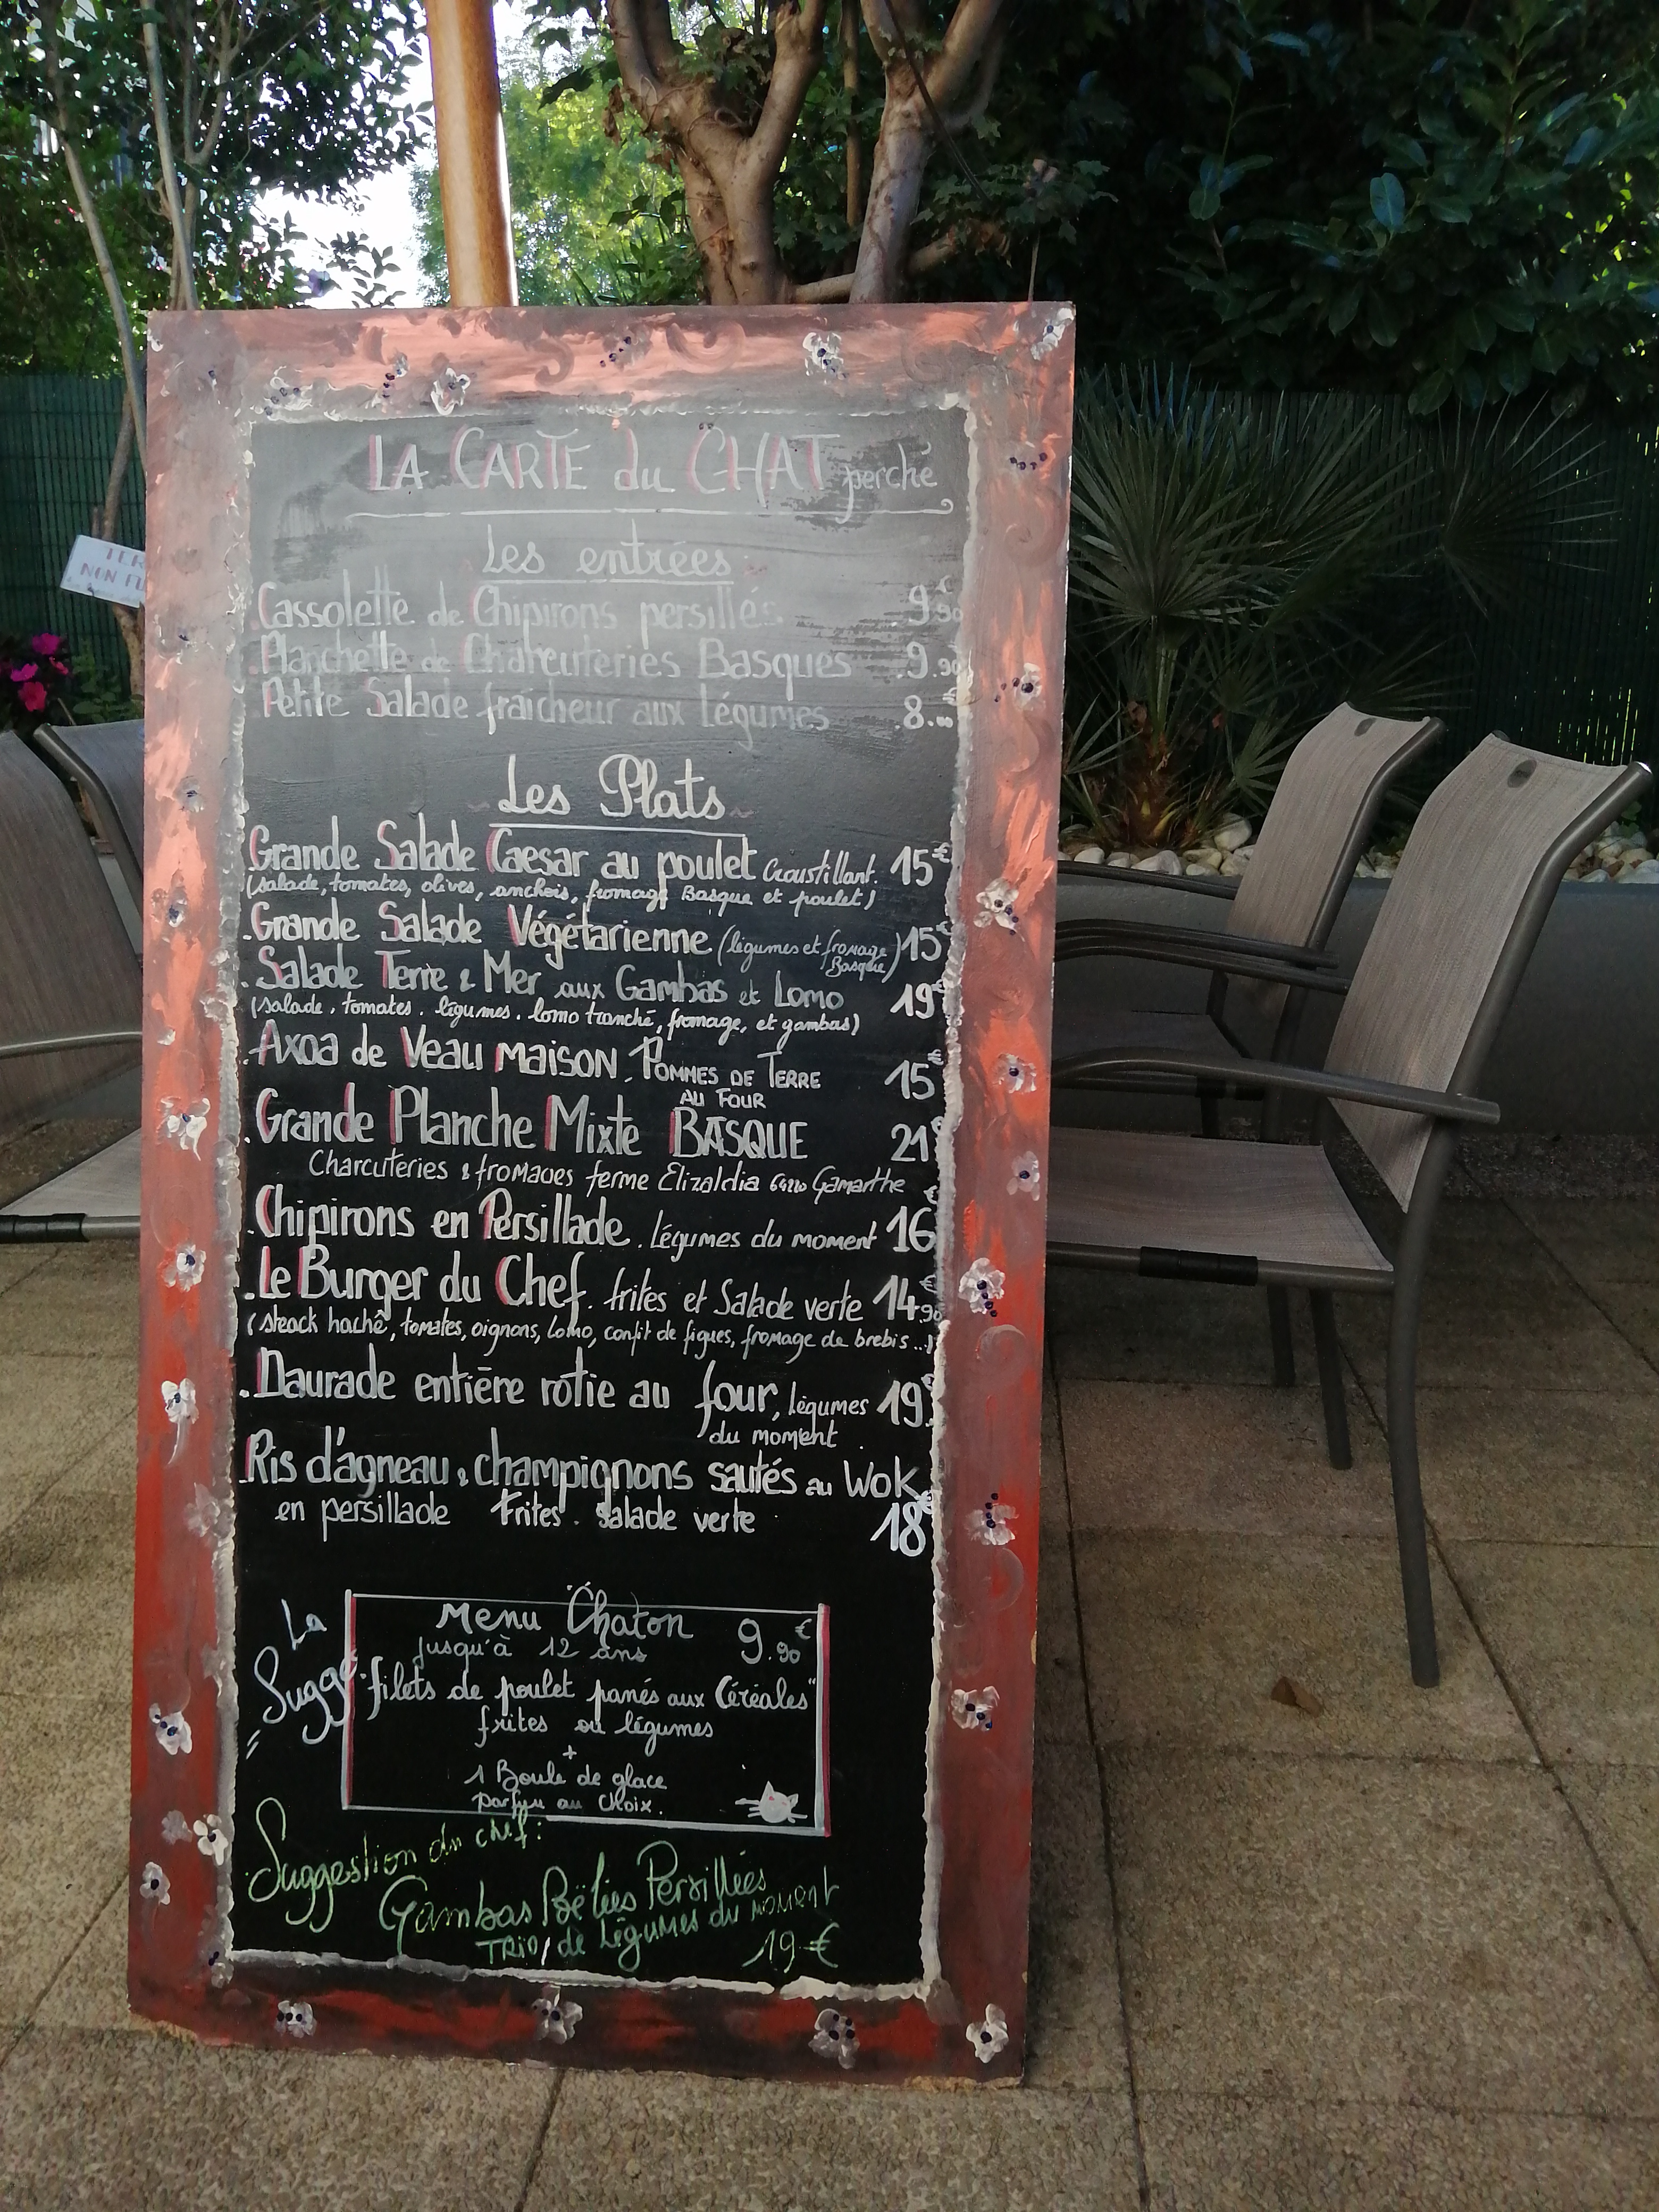 LA CARTE du CHAT perché
Les entrées
Cassolette de Chipirons persillés. 9.90€
Planchette de Charcuteries Basques 9.90
Petite Salade fraîcheur aux légumes 8.00
Les Plats
Grande Salade Caesar au poulet Croustillant. 15€
(salade, tomates, olives, anchois, fromage Basque et poulet)
Grande Salade Végétarienne (légumes et fromage Basque) 15€
Salade Terre & Mer aux Gambas et Lomo 19€
(salade, tomates, légumes, lomo tranché, fromage, et gambas)
Axoa de Veau maison, Pommes de Terre 15€
au Four
Grande Planche Mixte BASQUE 21€
Charcuteries & fromages ferme Elizaldia 64220 Gamarthe
Chipirons en Persillade. Légumes du moment 16€
Le Burger du Chef. frites et Salade verte 14.90
(steack haché, tomates, oignons, Lomo, confit de figues, fromage de brebis...)
Daurade entière rotie au four, légumes 19€
du moment.
Ris d'agneau & champignons sautés au Wok
en persillade Frites. Salade verte 18€
Menu Chaton 9.90€
jusqu'à 12 ans
La
Sugge
"filets de poulet panés aux Céréales"
frites ou légumes
+
1 Boule de glace
parfum au choix.
Suggestion du chef:
Gambas Poëlées Persillées
TRIO de Légumes du moment
19€
TER
NON FU